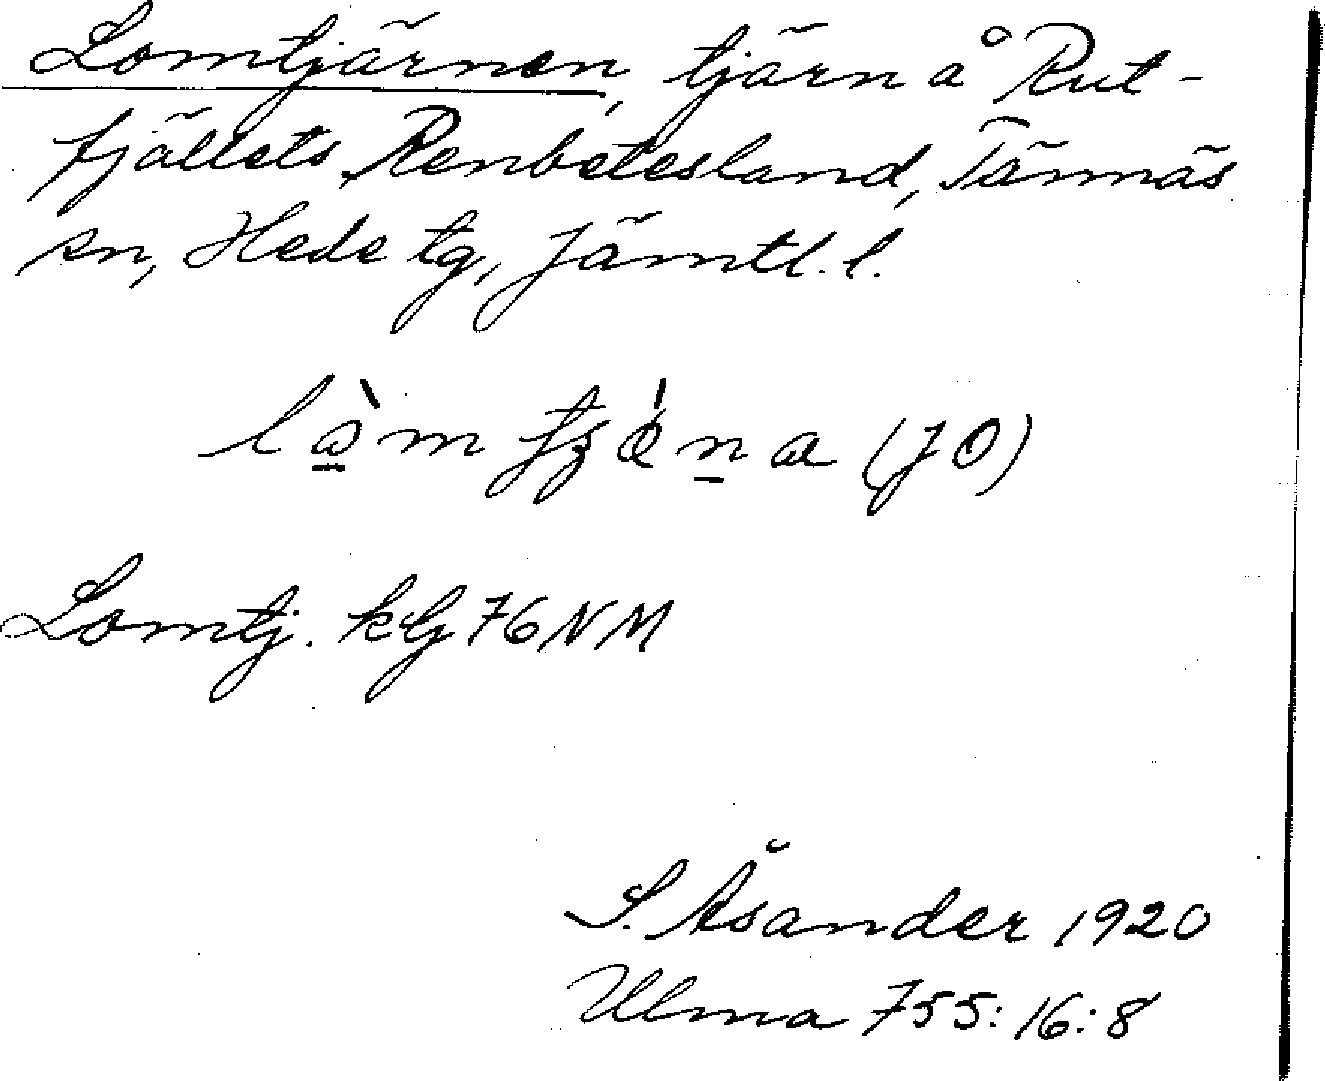 Lomtjärnen, tjärn å Rut-
fjällets Renbetesland, Tännäs
sn, Hede tg, Jämtl. l.
(JO)
Lomtj. kbl 76 NM
S. Åsander 1920
Ulma 755:16:8